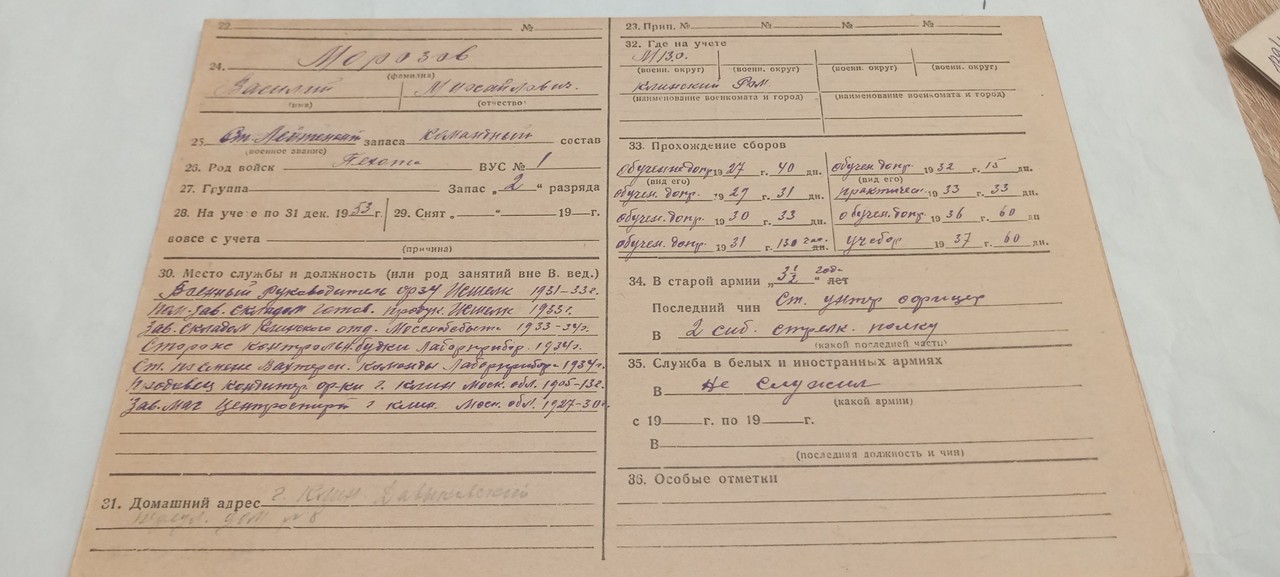 22. №
24. Морозов
(фамилия)
Василий Михайлович.
(имя) (отчество)
25. Ст. Лейтенант запаса командный состав
(военное звание)
26. Род войск Пехота ВУС № 1
27. Группа Запас „ 2 “ разряда
28. На учете по 31 дек. 1953 г. 29. Снят „ “ 19 г.
вовсе с учета
(причина)
30. Место службы и должность (или род занятий вне В. вед.)
Военный руководитель 1931-33 г.
Пом. зав. складом готов. 1933 г.
Зав. складом Клинского отд. 1933-34 г.
Сторож контрольн. будки Лаборприбор. 1934 г.
Ст. команды Лаборприбор 1934 г.
г. Клин Моск. обл. 1905-13 г.
Зав. маг Центроспирт г Клин. Моск. обл. 1927-30 г.
31. Домашний адрес г. Клин.
дом № 8
23. Прип. № № № №
32. Где на учете
М.В.О.
(воен. округ) (воен. округ) (воен. округ) (воен. округ)
Клинский
(наименование военкомата и город) (наименование военкомата и город)
33. Прохождение сборов
1927 г. 40 дн. обучен. допр. 1932 г. 15 дн.
(вид его) (вид его)
обучен. допр. 1929 г. 31 дн. практичес 1933 г. 33 дн.
обучен. допр. 1930 г. 33 дн. обучен. допр. 1936 г. 60 дн
обучен. допр. 1931 г. 130 час. дн. 1937 г. 60 дн.
34. В старой армии „ 3½ “ года лет
Последний чин Ст. унтер офицер
В 2 сиб. стрелк. полку
(какой последней части)
35. Служба в белых и иностранных армиях
В Не служил
(какой армии)
с 19 г. по 19 г.
В
(последняя должность и чин)
36. Особые отметки